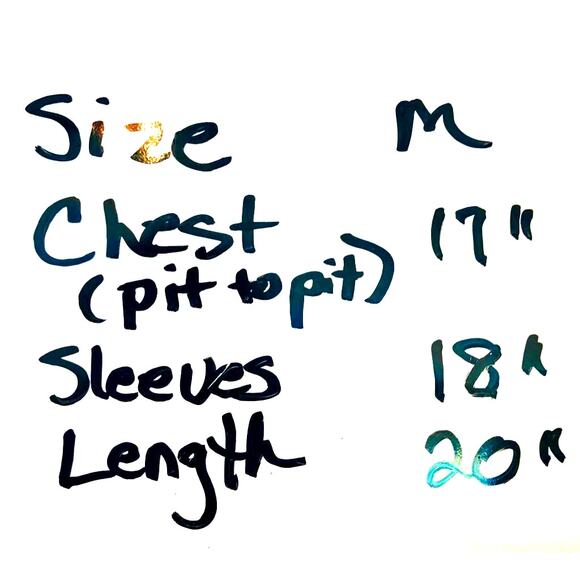 Size M
Chest 17"
(pit to pit)
Sleeves 18"
Length 20"